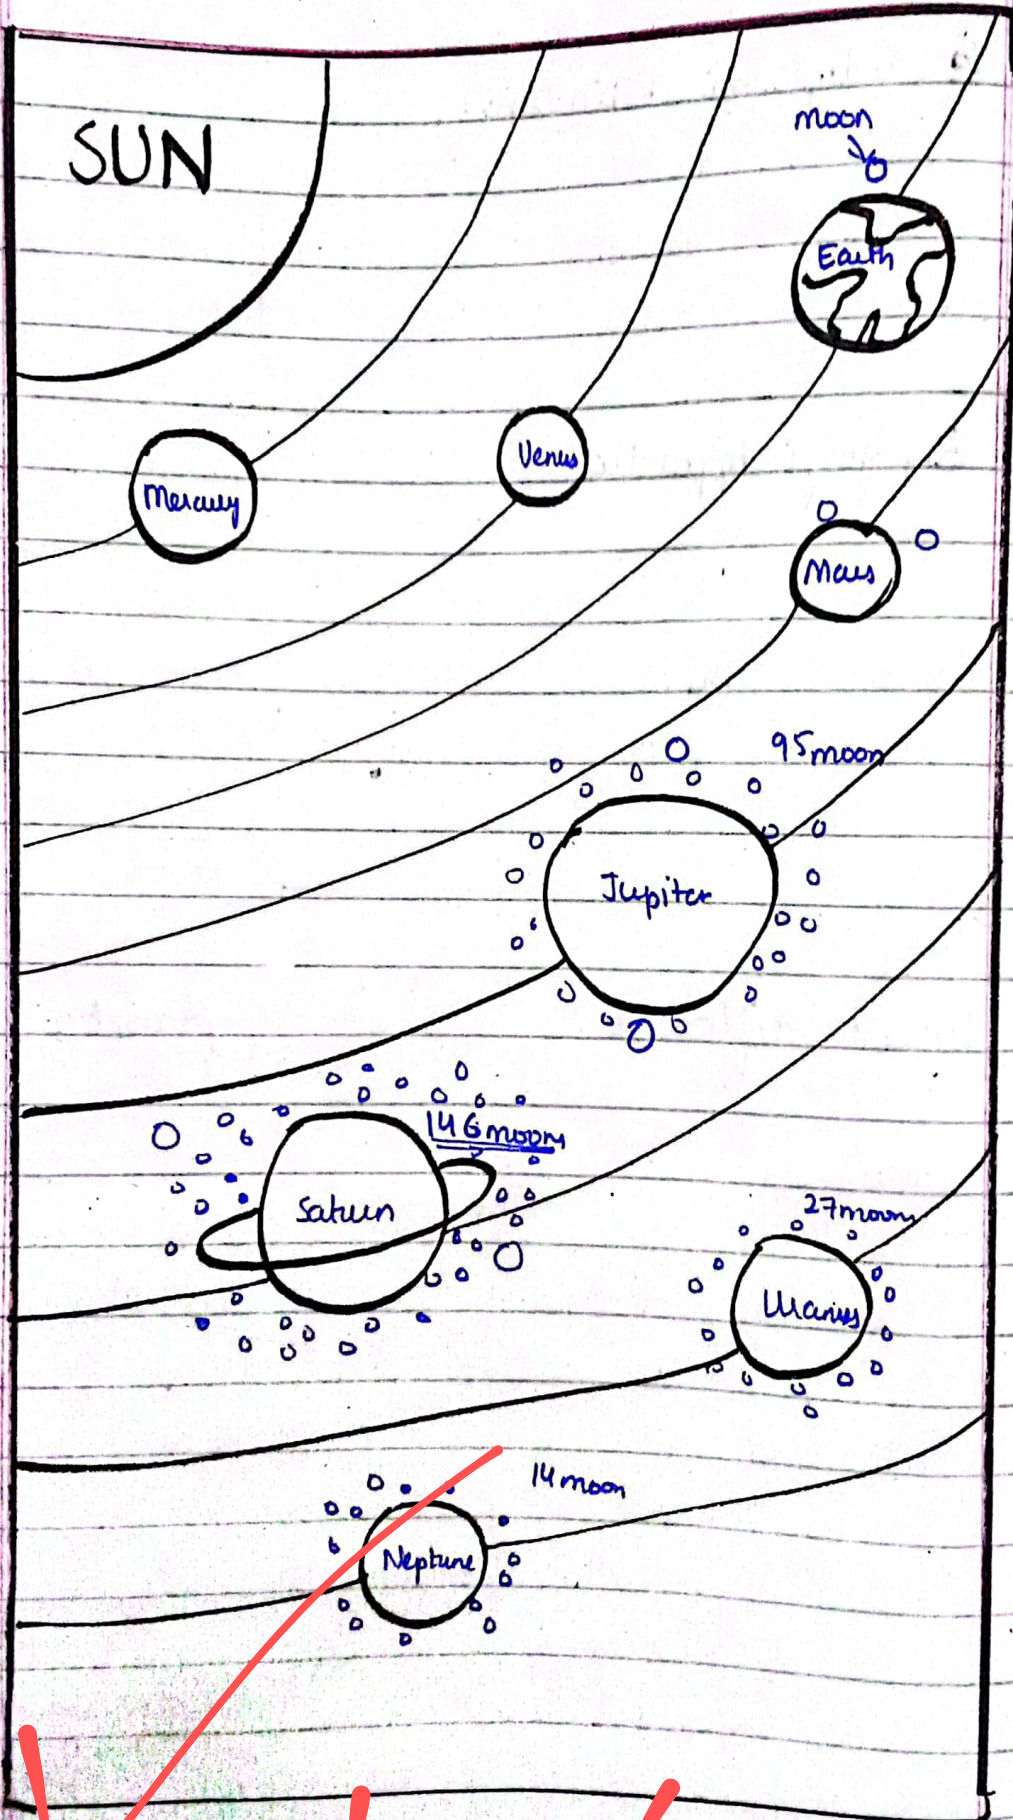 SUN
moon
Earth
Venus
Mercury
Mars
95 moon
Jupiter
146 moon
Saturn
27 moon
Uranus
14 moon
Neptune